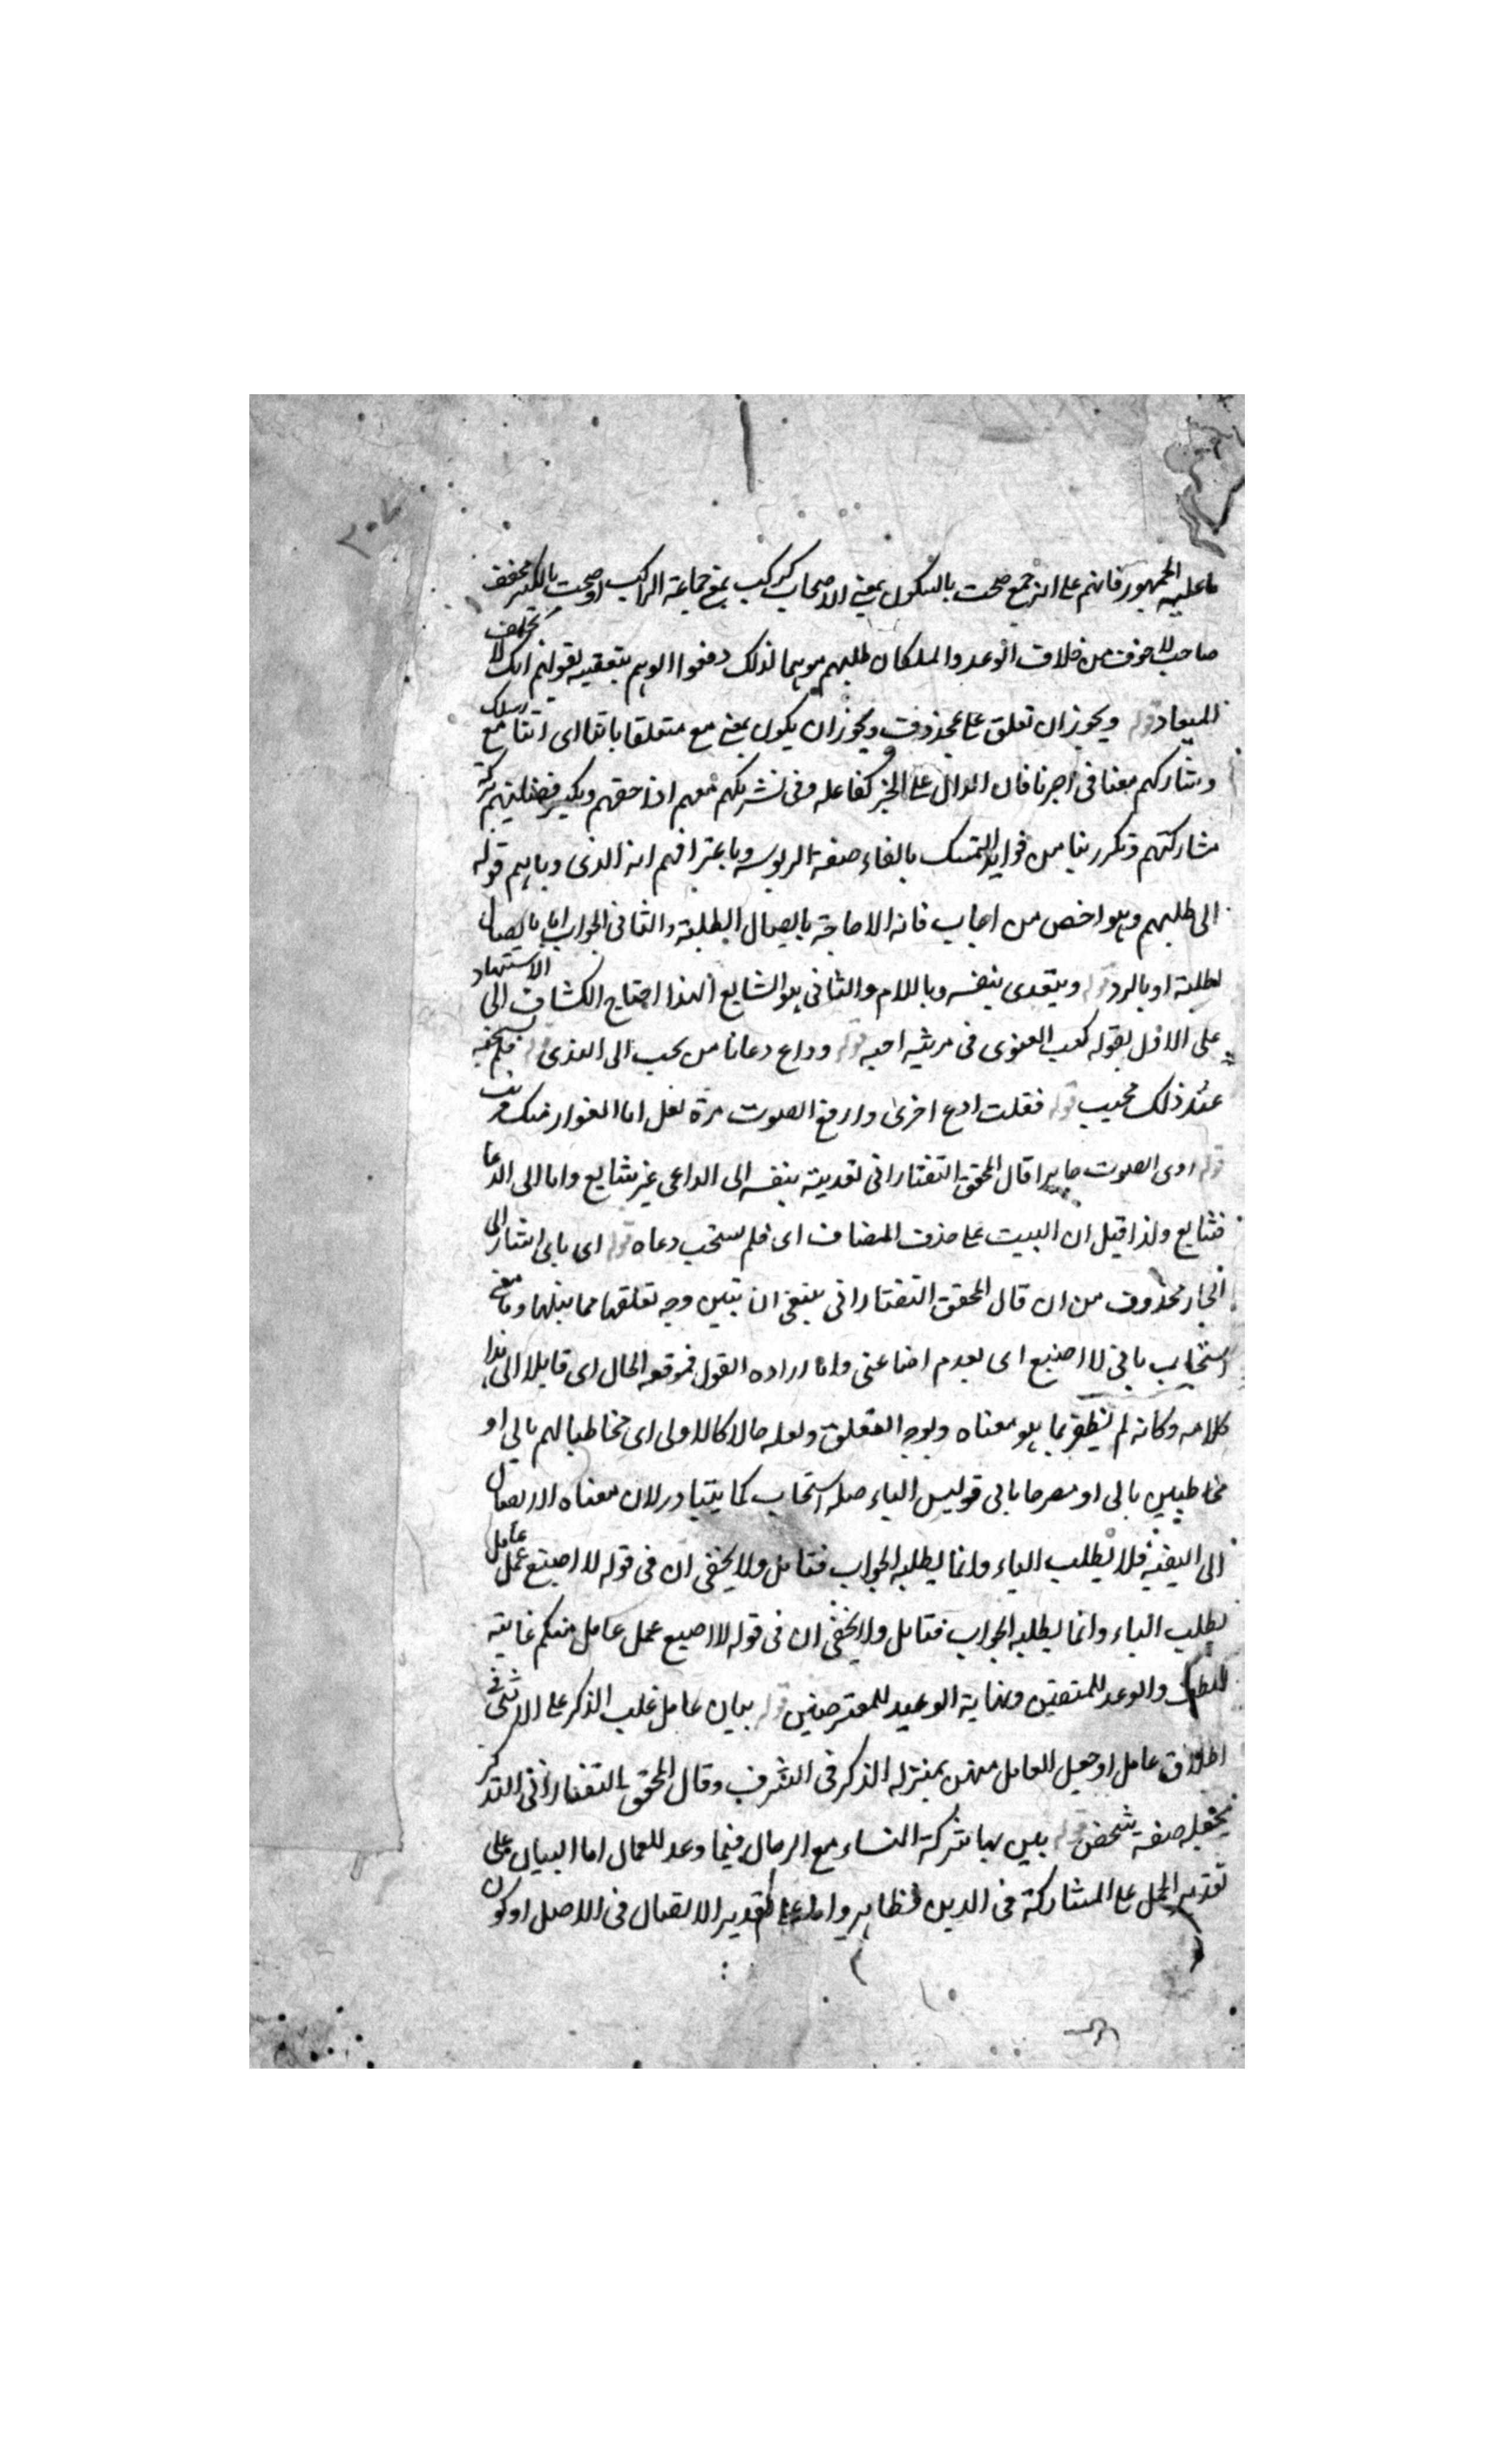 ما عليه الجمهور فانهم على انه جمع صحب بالسكون بمعنى الاصحاب كركب بمعنى جماعة الراكب او صحب بالكسر مخفف
صاحب لا خوف من خلاف الوعد والملكان طلبهم موهما لذلك دفعوا الوهم بتعقيبه بقولهم انك لا تخلف
الميعاد قوله ويجوز ان تعلق على بمحذوف ويجوز ان يكون بمعنى مع متعلقا باتنا اى اتنا مع رسلك
وشاركهم معنا فى اجرنا فان الدال على الخير كفاعله وفى تشريكهم معهم اداء حقهم وتكثير فضيلتهم
مشاركتهم وتكرر ربنا من فوايد التمسك بالقاء صفة الربوبية وباعترافهم انه الذى رباهم قوله
الى طلبهم وهو اخص من اجاب فانه الاجابة بايصال الطلبة والثانى الجواب اما بايصال
لطلبته او بالرد قوله ويتعدى بنفسه وباللام والثانى هو الشايع ولهذا احتاج الكشاف الى الاستشهاد
على الاول بقوله كعب الغنوى فى مرثيه اخيه قوله وداع دعانا من يجب الى الندى قوله فلم يستجبه
عند ذلك مجيب قوله فقلت ادع اخرى وارفع الصوت مرة لعل ابا المغوار منك قريب
قوله الصوت قال المحقق التفتازانى تعديته بنفسه الى الداعى غير شايع واما الى الدعا
فشايع ولذا قيل ان البيت على حذف المضاف اى فلم يستجب دعاه قوله اى بانى اشار الى
الجار محذوف من ان قال المحقق التفتازانى ينبغى ان يتبين وجه تعلقها مما قبلها وما معنى
استجاب بانى لا اضيع اى بعدم اضاعتى واما اراده القول فموقعه الحال اى قايلا الى هذا
كلامه وكانه لم يظفر بما هو معناه وبوجه التعلق ولعله حالا كالاولى اى مخاطبا لهم بانى او
مخاطبين بانى او مصرحا بانى قوليس الباء صلة استجاب كما يتبادر لان معناه الايصال
الى البغية فلا يطلب الباء وانما يطلبه الجواب فتامل ولا يخفى ان فى قوله لا اضيع عمل عامل
يطلب الباء وانما يطلبه الجواب فتامل ولا يخفى ان فى قوله لا اضيع عمل عامل منكم غاية
اللطف والوعد للمتقين ونهاية الوعيد للمعترضين قوله بيان عامل غلب الذكر على الانثى فى
اطلاق عامل او جعل العامل منهن بمنزلة الذكر فى الشرف وقال المحقق التفتازانى التذكير
يجعله صفة شخص قوله بين بها شركة النساء مع الرجال فيما وعد للعمال اما البيان على
تقدير الحمل على المشاركة فى الدين فظاهر واما على تقدير الاتصال فى الاصل او كون